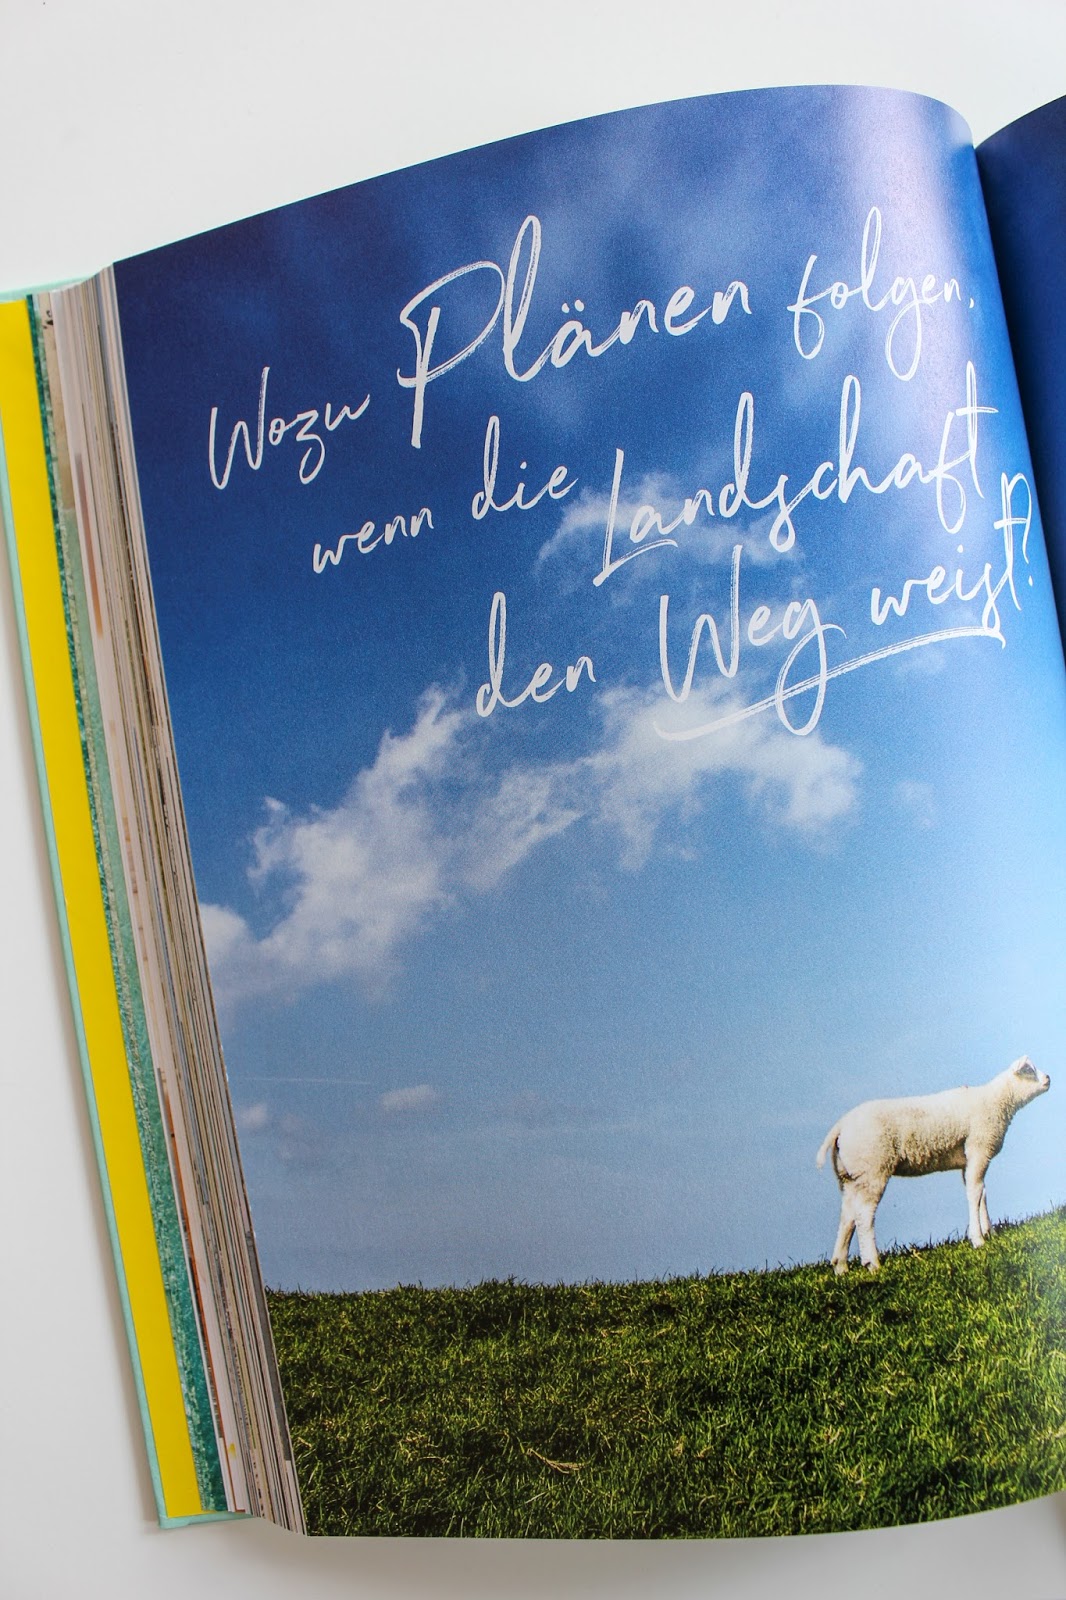 Wozu Plänen folgen,
wenn die Landschaft
den Weg weist?